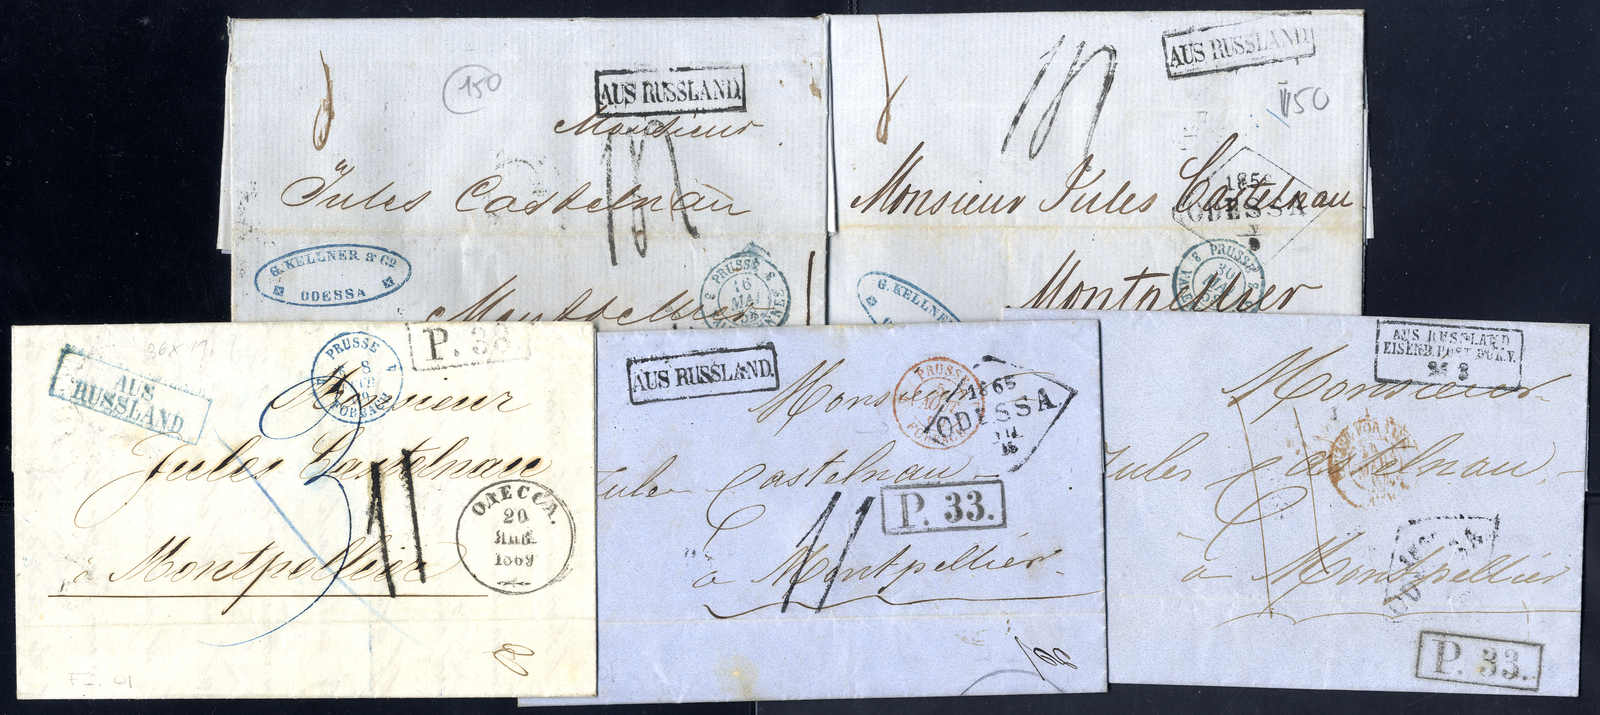 150
AUS RUSSLAND
Monsieur
Jules Castelnau
G. KELLNER & Co
ODESSA
PRUSSE
16
MAI
Montpellier
AUS RUSSLAND
150
Monsieur Jules Castelnau
ODESSA
PRUSSE
30
G. KELLNER
Montpellier
AUS
RUSSLAND
PRUSSE
8
FORBACH
P. 33
Monsieur
Jules Castelnau
11
à Montpellier
ОДЕССА.
20
ЯНВ.
1869
AUS RUSSLAND.
PRUSSE
1865
ODESSA
Monsieur
Jules Castelnau
P. 33.
11
à Montpellier
AUS RUSSLAND
EISENB. POST BUR. V.
Monsieur
Jules Castelnau
à Montpellier
P. 33.